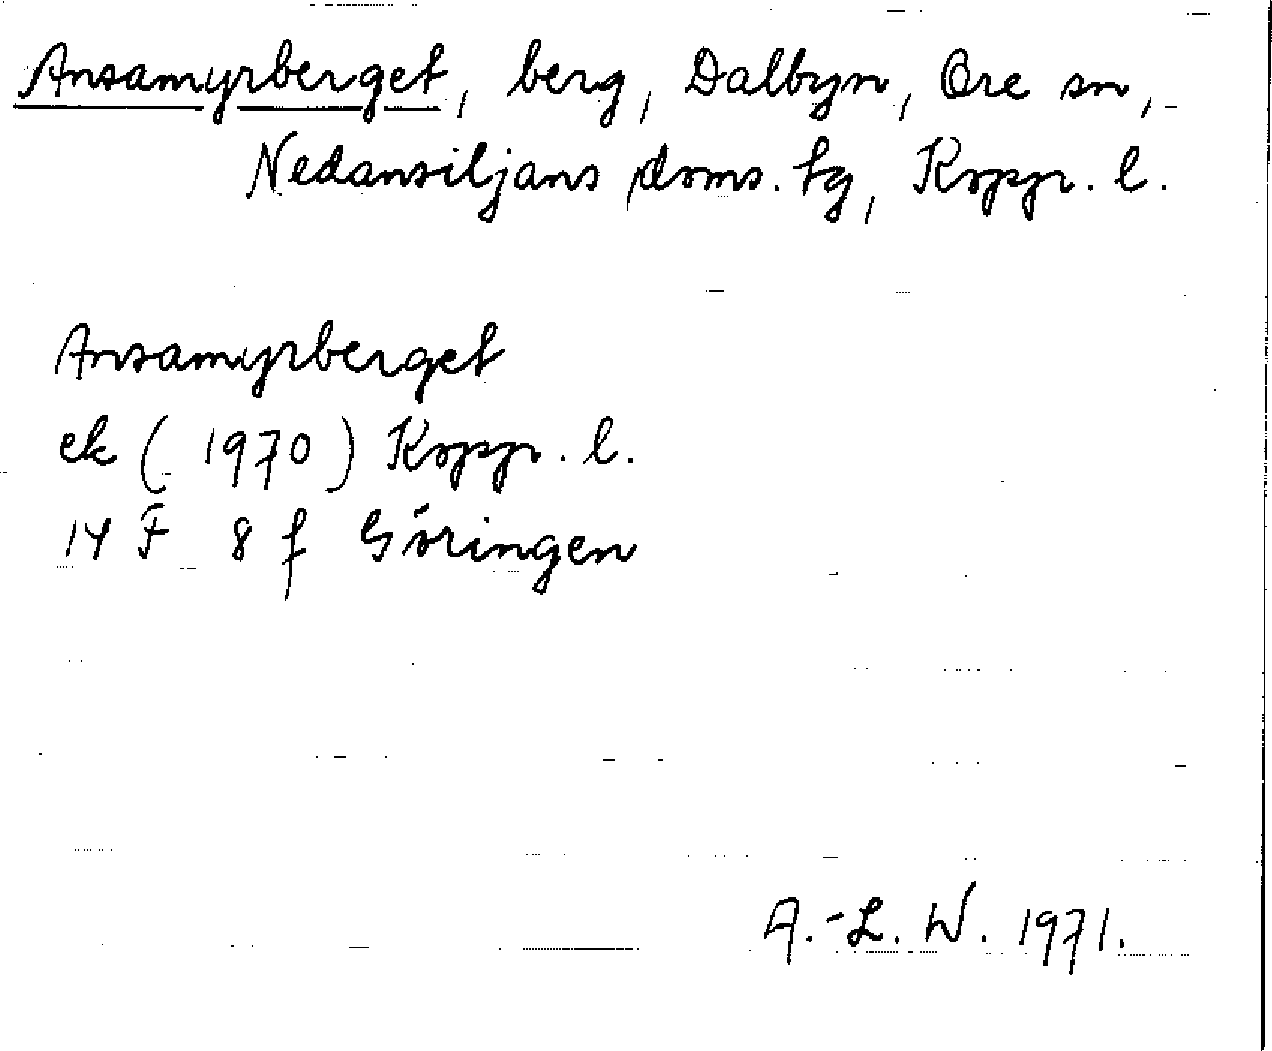 Ansamyrberget, berg, Dalbyn, Ore sn,
Nedansiljans doms. tg, Kopp. l.
Ansamyrberget
ek (1970) Kopp. l.
14 F 8 f Göringen
A.-L. W. 1971.